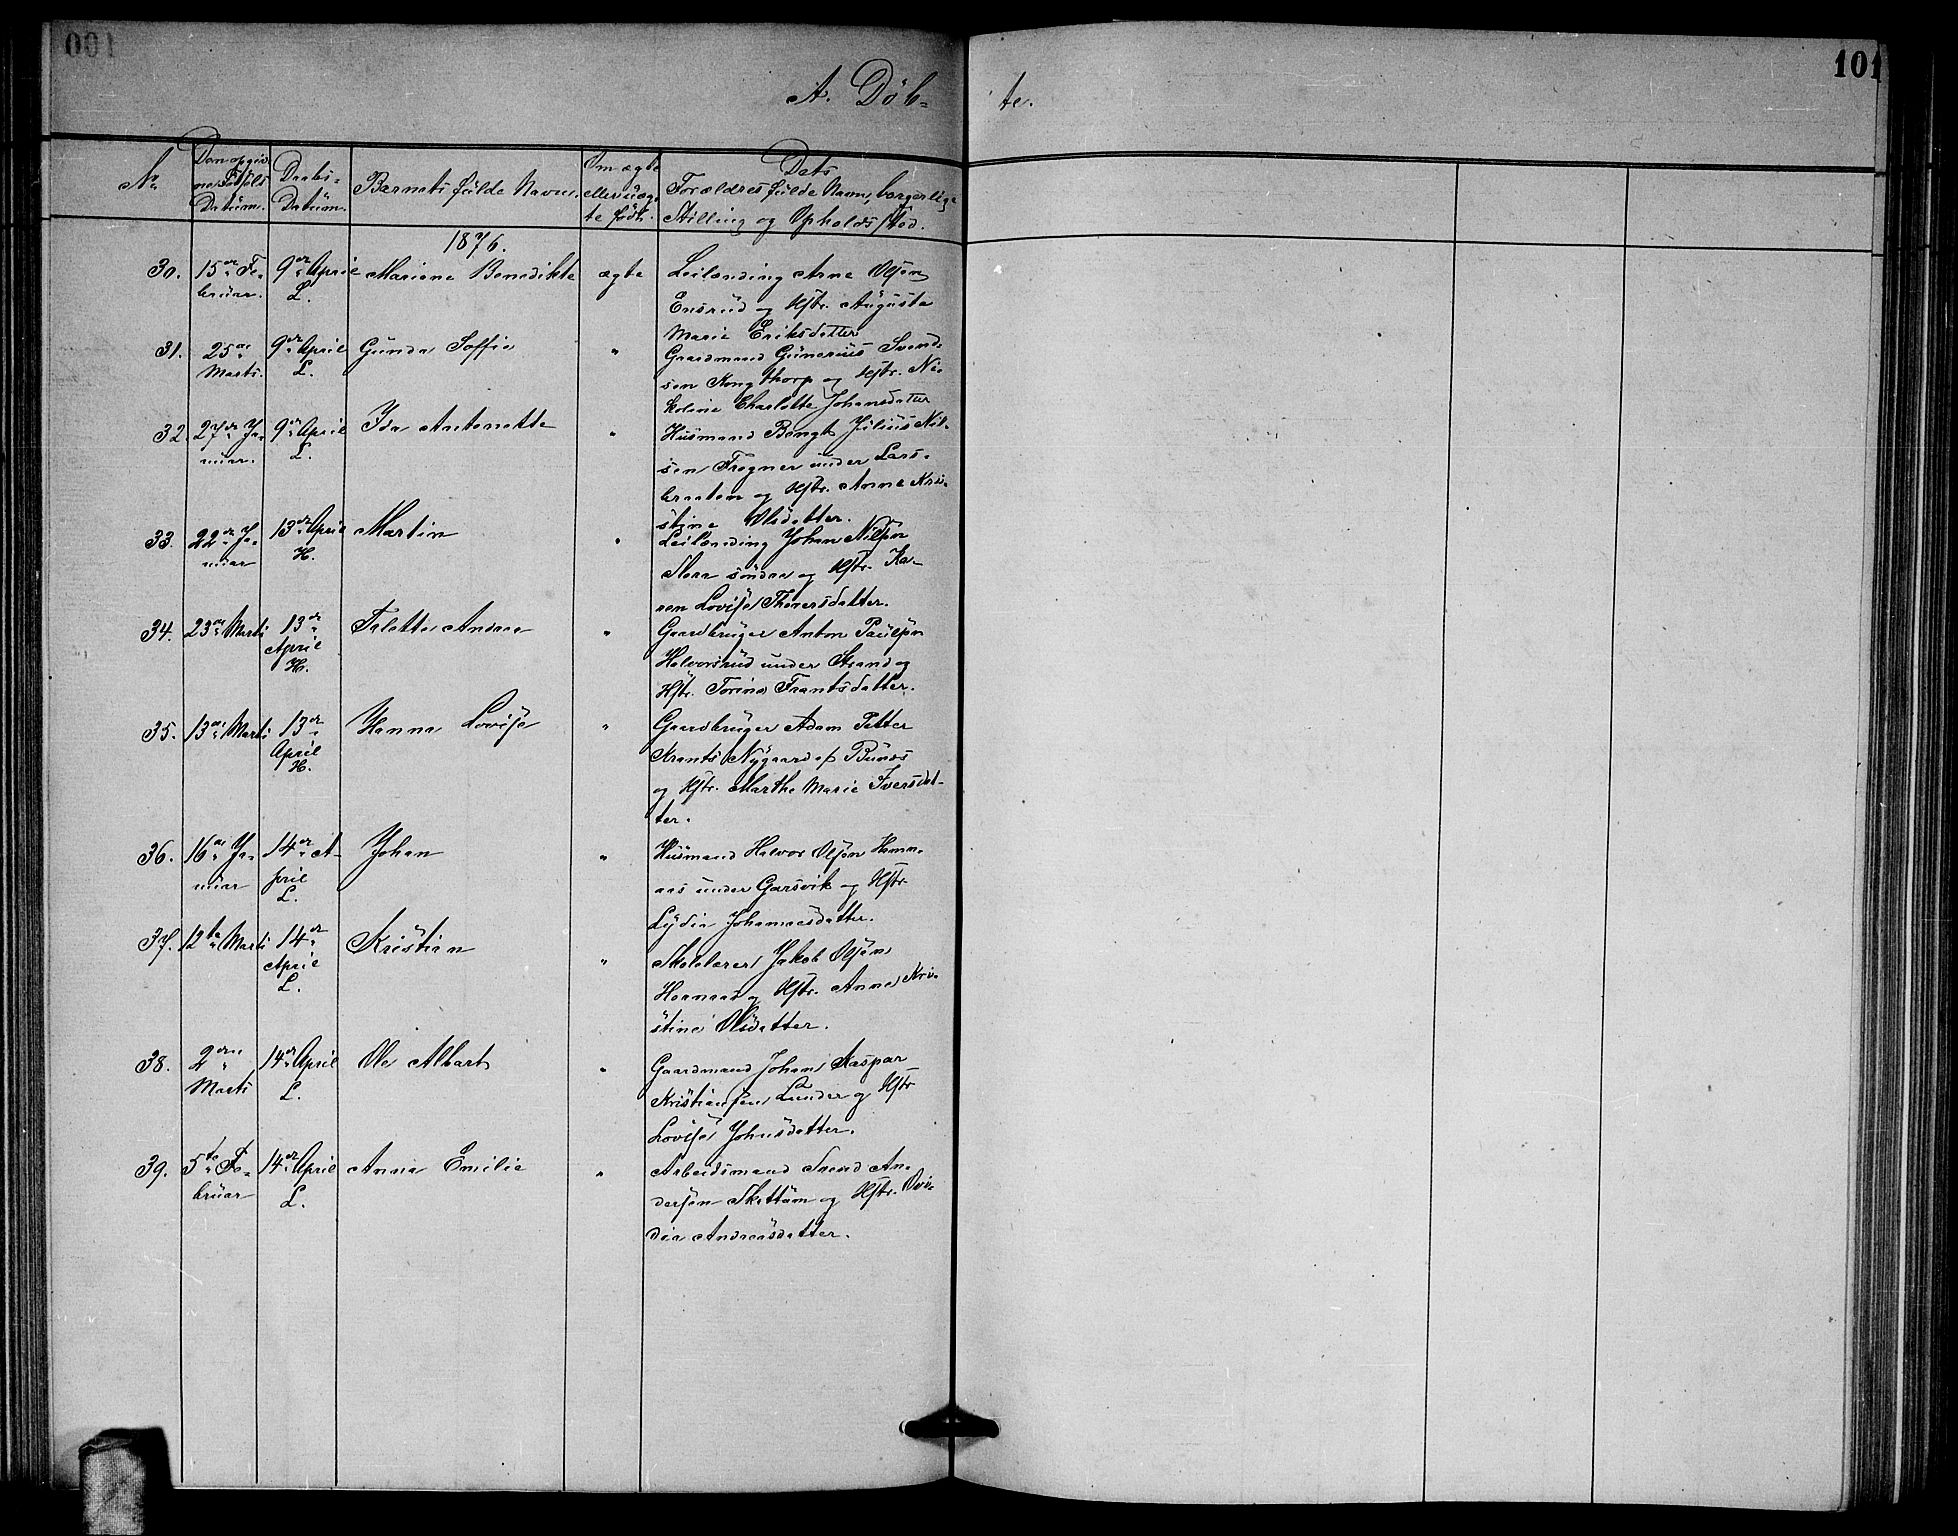 001
101
A. Døb-
te.
No
Den opgiv
ne Fødsels
Datum.
Daabs-
Datum.
Barnets fulde Navn.
Om ægte
eller uæg-
te født.
Dets
Forældres fulde Navn, borgerlige
Stilling og Opholdssted.
1876.
30. 15de Fe- 9de April Mariane Benedikte ægte Leilænding Arne Olsen
bruar. L. Ensrud og Hstr. Augusta
Marie Eriksdatter
31. 25de 9de April Gunda Soffie " Gaardmand Gunerius Svend-
Marts. L. sen Kongthorp og Hstr. Ni-
koline Charlotte Johansdatter
32. 27de Ja- 9de April Ida Antonette " Husmand Bengt Julius Nil-
nuar. L. sen Frogner under Lars-
braaten og Hstr. Anne Kri-
stine Olsdatter.
33. 22de Ja- 13de April Martin " Leilænding Johan Nilsen
nuar H. søndre og Hstr. Ka-
ren Lovise Thorersdatter.
34. 23de Marts 13de Talette Andrea " Gaardbruger Anton Paulsen
April Halvorsrud under Strand og
H. Hstr. Torine Frantsdatter.
35. 13de Marts 13de Hanna Lovise " Gaardbruger Adam Petter
April Krants Nygaard af Bunes
H. og Hstr. Marthe Marie Iversdat-
ter.
36. 16de Ja- 14de A- Johan " Husmand Halvor Olsen Hamm-
nuar pril aas under Garsvik og Hstr
L. Lydia Johannesdatter.
37. 12te Marts 14de Kristian " Skolelærer Jakob Olsen
April Hoanaas og Hstr. Anne Kri-
L. stine Olsdatter.
38. 2den 14de April Ole Albart " Gaardmand Johan Kaspar
Marts L. Kristiansen Lunder og Hstr
Lovise Johnsdatter.
39. 5te Fe- 14de April Anna Emilie " Arbeidsmand Svend An-
bruar L. dersen Skottum og Hstr. Ovi-
dia Andreasdatter.